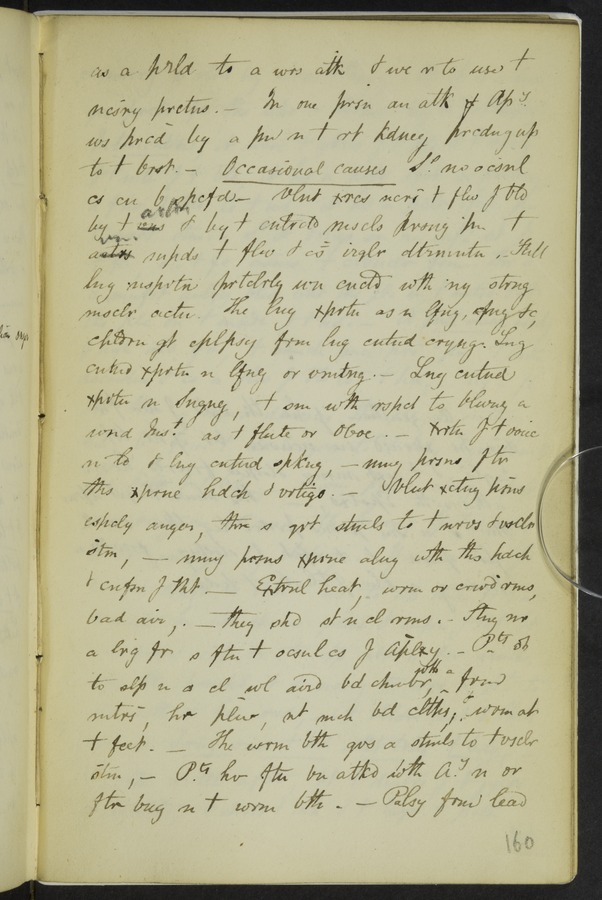 as a prld to a wors atk & we r to use t
ncsry prctns. — In one prsn an atk f Apy
ws prcd by a pn n t rt kdney prcdng up
to t brst. — Occasional causes So no ocsnl
cs cn b spcfd — Vlnt xrcs ncrs t flw f bld
by t & by t cntrctd mscls prsng pn t
mpds t flw & cs irglr dtrmntn. Still
lng rsprtn prtclrly wn cnctd wth ny strng
msclr actn. The lng xprtn as n lfng, &c,
chldrn gt eplpsy from lng cntnd cryng. Lng
cntnd xprtn n lfng or vmtng. — Lng cntnd
xprtn n Sngng, t sm wth rspct to blwng a
wnd Inst as t flute or Oboe. — xrtn f t voice
n ld & lng cntnd spkng, — mny prsns ftr
ths xprnc hdch & vrtigo. — Vlnt xctng psns
espcly anger, thr s grt stmls to t nrvs & vsclr
stm, — mny prsns xprnc alng wth ths hdch
& cnfsn f tht — Extrnl heat, wrm or crwd rms,
bad air, — they shd st n cl rms. — Stng nr
a lrg fr s ftn t ocsnl cs f Aplxy. — Pts sh
to slp n a cl wl aird bd chmbr, wth a frm
mtrs, hr plw, nt mch bd clths, wrm at
t feet. — The wrm bth gvs a stmls to t vsclr
stm, — Pts hv ftn bn atkd wth Ay n or
ftr bng n t wrm bth. — Palsy from lead
160